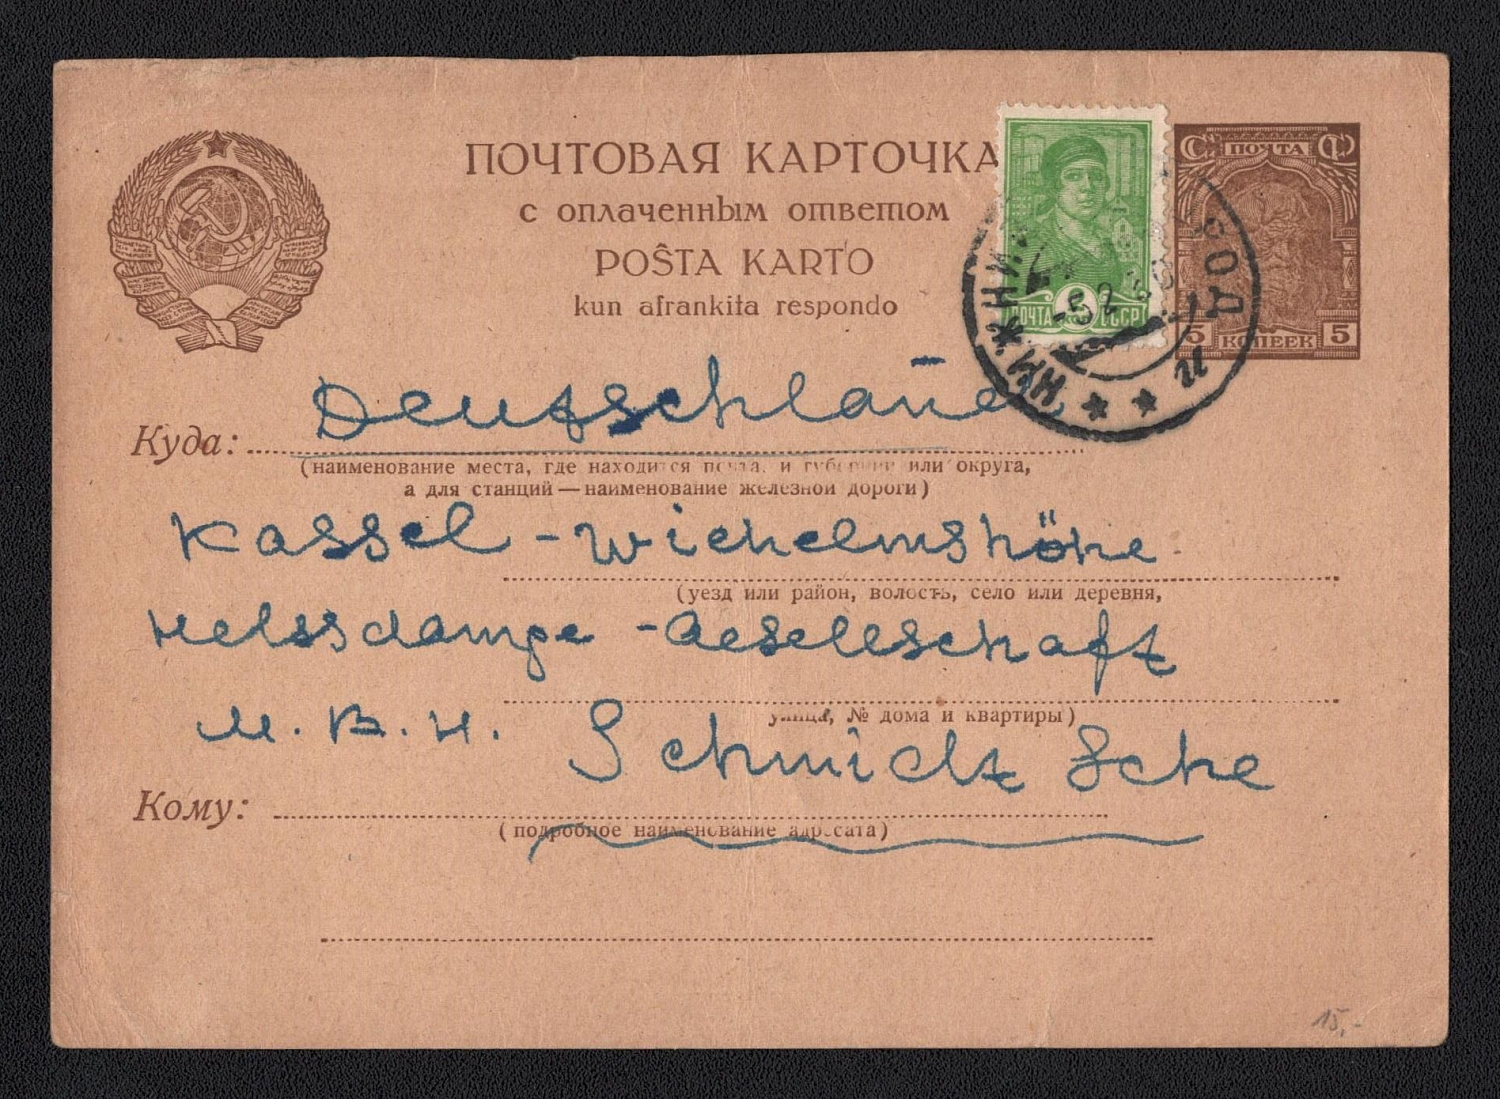 ПОЧТОВАЯ КАРТОЧКА
с оплаченным ответом
POŜTA KARTO
kun afrankita respondo
ПОЧТА
5 КОПЕЕК 5
ПОЧТА СССР
Deutschland
Куда:
(наименование места, где находится почта, и губернии или округа,
а для станций — наименование железной дороги)
Kassel - Wichelmshöhe
(уезд или район, волость, село или деревня,
-Gesellschaft
улица, № дома и квартиры)
M. B. H. Schmidt
Кому:
(подробное наименование адресата)
15,-